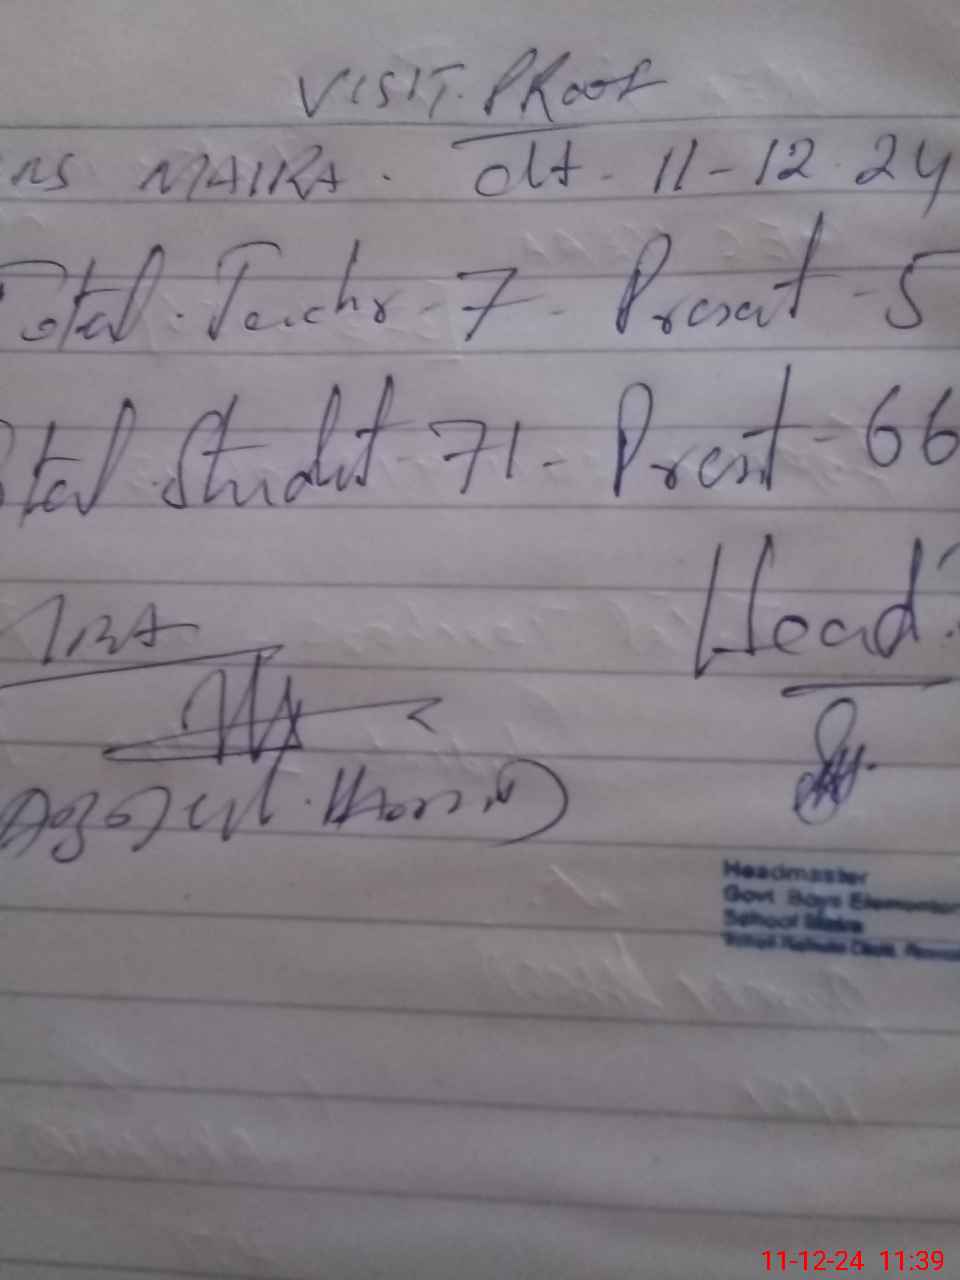 VISIT. PRoof
MS MAIRA. dt. 11-12.24
Total. Teachr - 7 - Present - 5
otal Studnt - 71 - Presnt - 66
Head.
Headmaster
Govt. Boys Elementar
School Maira
11-12-24 11:39